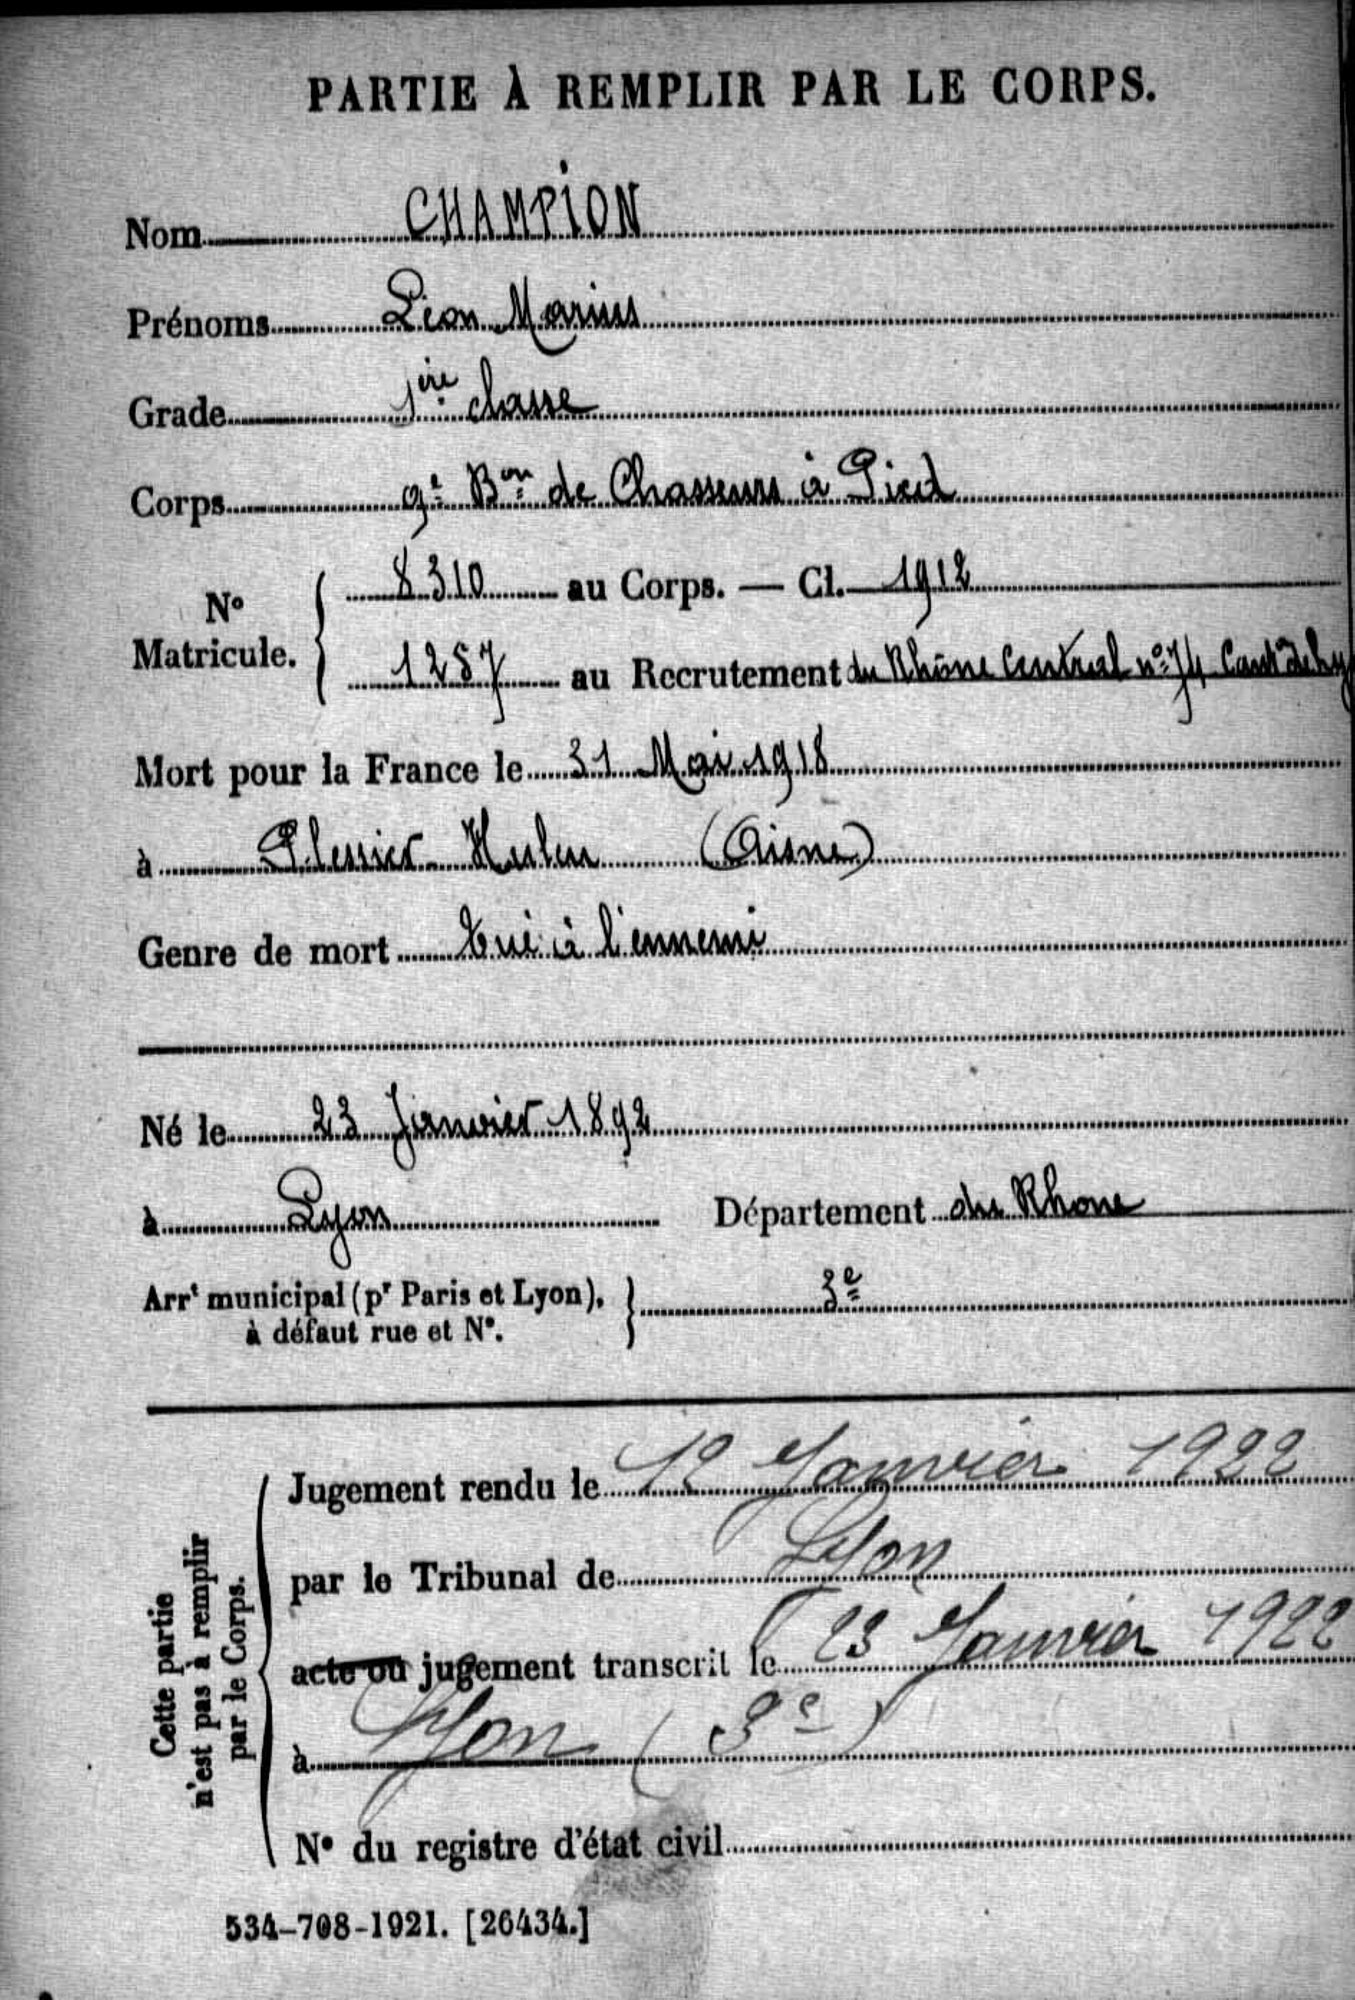 PARTIE À REMPLIR PAR LE CORPS.
Nom CHAMPION
Prénoms Léon Marius
Grade 1ère classe
Corps 9e Bon de Chasseurs à Pied
No Matricule. 8310 au Corps. — Cl. 1912
1287 au Recrutement du Rhône Central no 74
Mort pour la France le 31 Mai 1918
à Plessier Huleu (Aisne)
Genre de mort tué à l'ennemi
Né le 23 Janvier 1892
à Lyon Département du Rhone
Arrt municipal (pr Paris et Lyon), 3e
à défaut rue et No.
Cette partie
n'est pas à remplir
par le Corps.
Jugement rendu le 12 Janvier 1922
par le Tribunal de Lyon
acte ou jugement transcrit le 23 Janvier 1922
à Lyon (3e)
No du registre d'état civil
534-708-1921. [26434.]